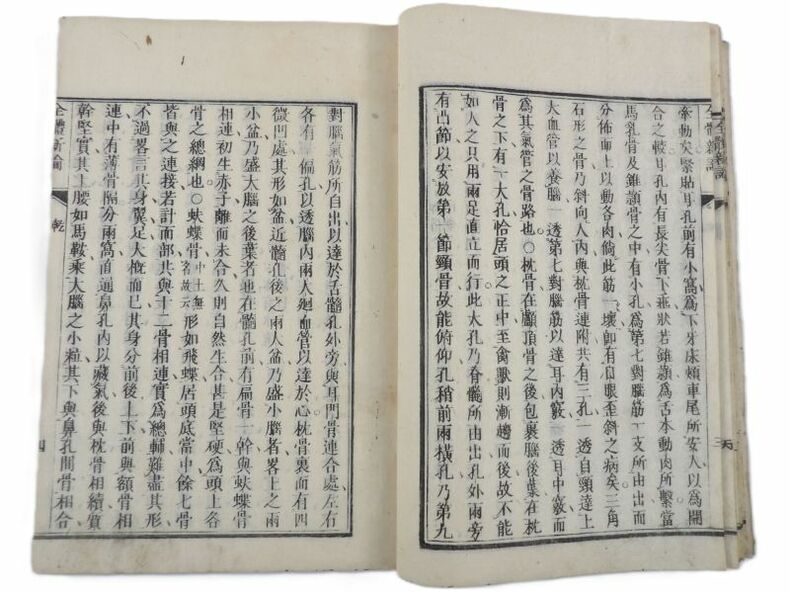 牽動矣緊貼耳孔前有小窩爲下牙床頰車尾所安人以爲開
合之較耳孔內有長尖骨下垂狀若錐顙爲舌本動肉所繫當
馬乳骨及錐顙骨之中有小孔爲第七對腦筋一支所由出而
分佈面上以動各肉倘此筋一壞卽有㖞眼歪斜之病矣三角
石形之骨乃斜向人內與枕骨連附共有三孔一透自頸達上
大血管以養腦一透第七對腦筋以達耳內竅一透耳中竅而
爲其氣管之骨路也〇枕骨在顱頂骨之後包裹腦後葉在枕
骨之下有一大孔恰居頭之正中至禽獸則漸趨而後故不能
如人之只用兩足直立而行此大孔乃脊髓所由出孔外兩旁
有凸節以安放第一節頸骨故能俯仰孔稍前兩橫孔乃第九
對腦氣筋所自出以達於舌髓孔外旁與耳門骨連合處左右
各有一偏孔以透腦內兩大廻血管以達於心枕骨裏面有四
微凹處其形如盆近髓孔後之兩大盆乃盛小腦者畧上之兩
小盆乃盛大腦之後葉者也在髓孔前有扁骨一幹與蚨蝶骨
相連初生赤子離而未合久則自然生合甚是堅硬爲頭上各
骨之總綱也〇蚨蝶骨中土無名故云形如飛蝶居頭底當中餘七骨
皆與之連接若計面部共與十二骨相連實爲總輔難盡其形
不過畧言其身翼足大槪而已其身分前後上下前與額骨相
連中有薄骨隔分兩窩直通鼻孔內以藏氣後與枕骨相續實
幹堅實其上腰如馬鞍乘大腦之小粒其下與鼻孔間骨相合
全體新論
乾
四